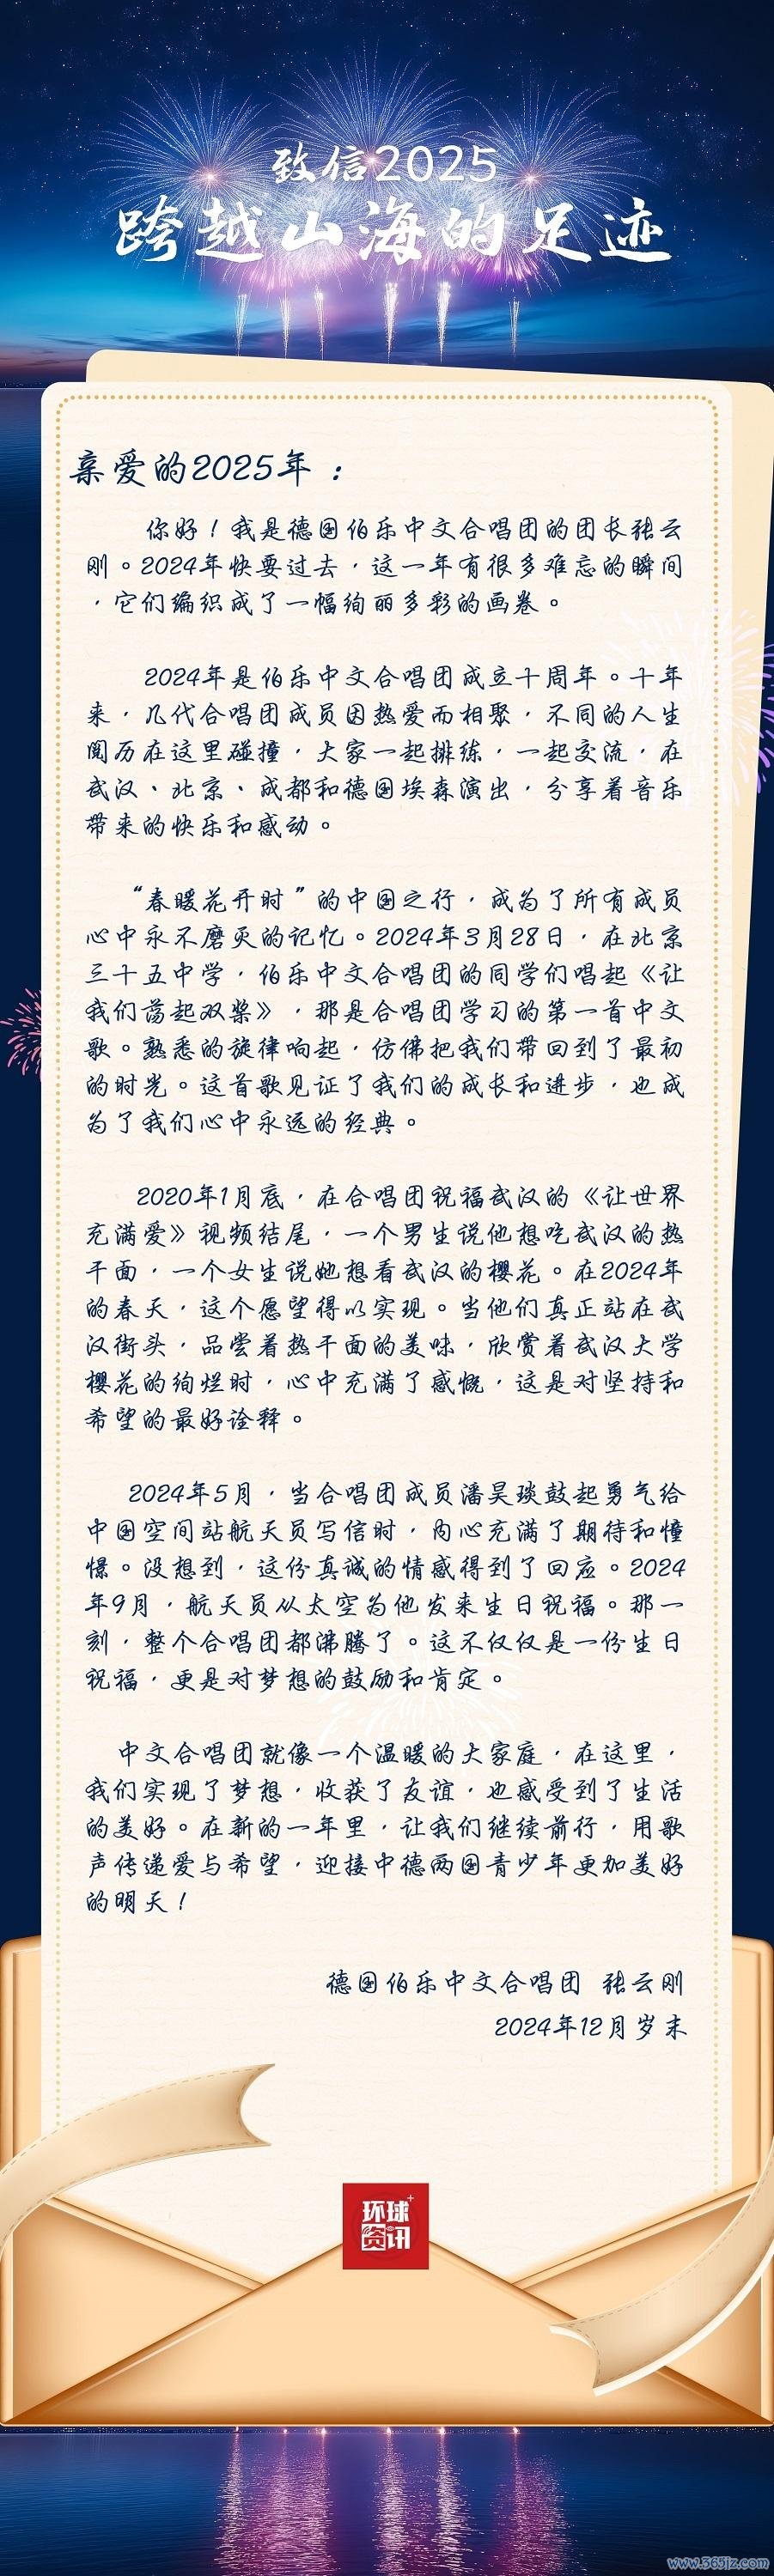 致信2025
跨越山海的足迹
亲爱的2025年：
你好！我是德国伯乐中文合唱团的团长张云
刚。2024年快要过去，这一年有很多难忘的瞬间
，它们编织成了一幅绚丽多彩的画卷。
2024年是伯乐中文合唱团成立十周年。十年
来，几代合唱团成员因热爱而相聚，不同的人生
阅历在这里碰撞，大家一起排练，一起交流，在
武汉、北京、成都和德国埃森演出，分享着音乐
带来的快乐和感动。
“春暖花开时”的中国之行，成为了所有成员
心中永不磨灭的记忆。2024年3月28日，在北京
三十五中学，伯乐中文合唱团的同学们唱起《让
我们荡起双桨》，那是合唱团学习的第一首中文
歌。熟悉的旋律响起，仿佛把我们带回到了最初
的时光。这首歌见证了我们的成长和进步，也成
为了我们心中永远的经典。
2020年1月底，在合唱团祝福武汉的《让世界
充满爱》视频结尾，一个男生说他想吃武汉的热
干面，一个女生说她想看武汉的樱花。在2024年
的春天，这个愿望得以实现。当他们真正站在武
汉街头，品尝着热干面的美味，欣赏着武汉大学
樱花的绚烂时，心中充满了感慨，这是对坚持和
希望的最好诠释。
2024年5月，当合唱团成员潘昊琰鼓起勇气给
中国空间站航天员写信时，内心充满了期待和憧
憬。没想到，这份真诚的情感得到了回应。2024
年9月，航天员从太空为他发来生日祝福。那一
刻，整个合唱团都沸腾了。这不仅仅是一份生日
祝福，更是对梦想的鼓励和肯定。
中文合唱团就像一个温暖的大家庭，在这里，
我们实现了梦想，收获了友谊，也感受到了生活
的美好。在新的一年里，让我们继续前行，用歌
声传递爱与希望，迎接中德两国青少年更加美好
的明天！
德国伯乐中文合唱团 张云刚
2024年12月岁末
环球
资讯+
www.365jz.com